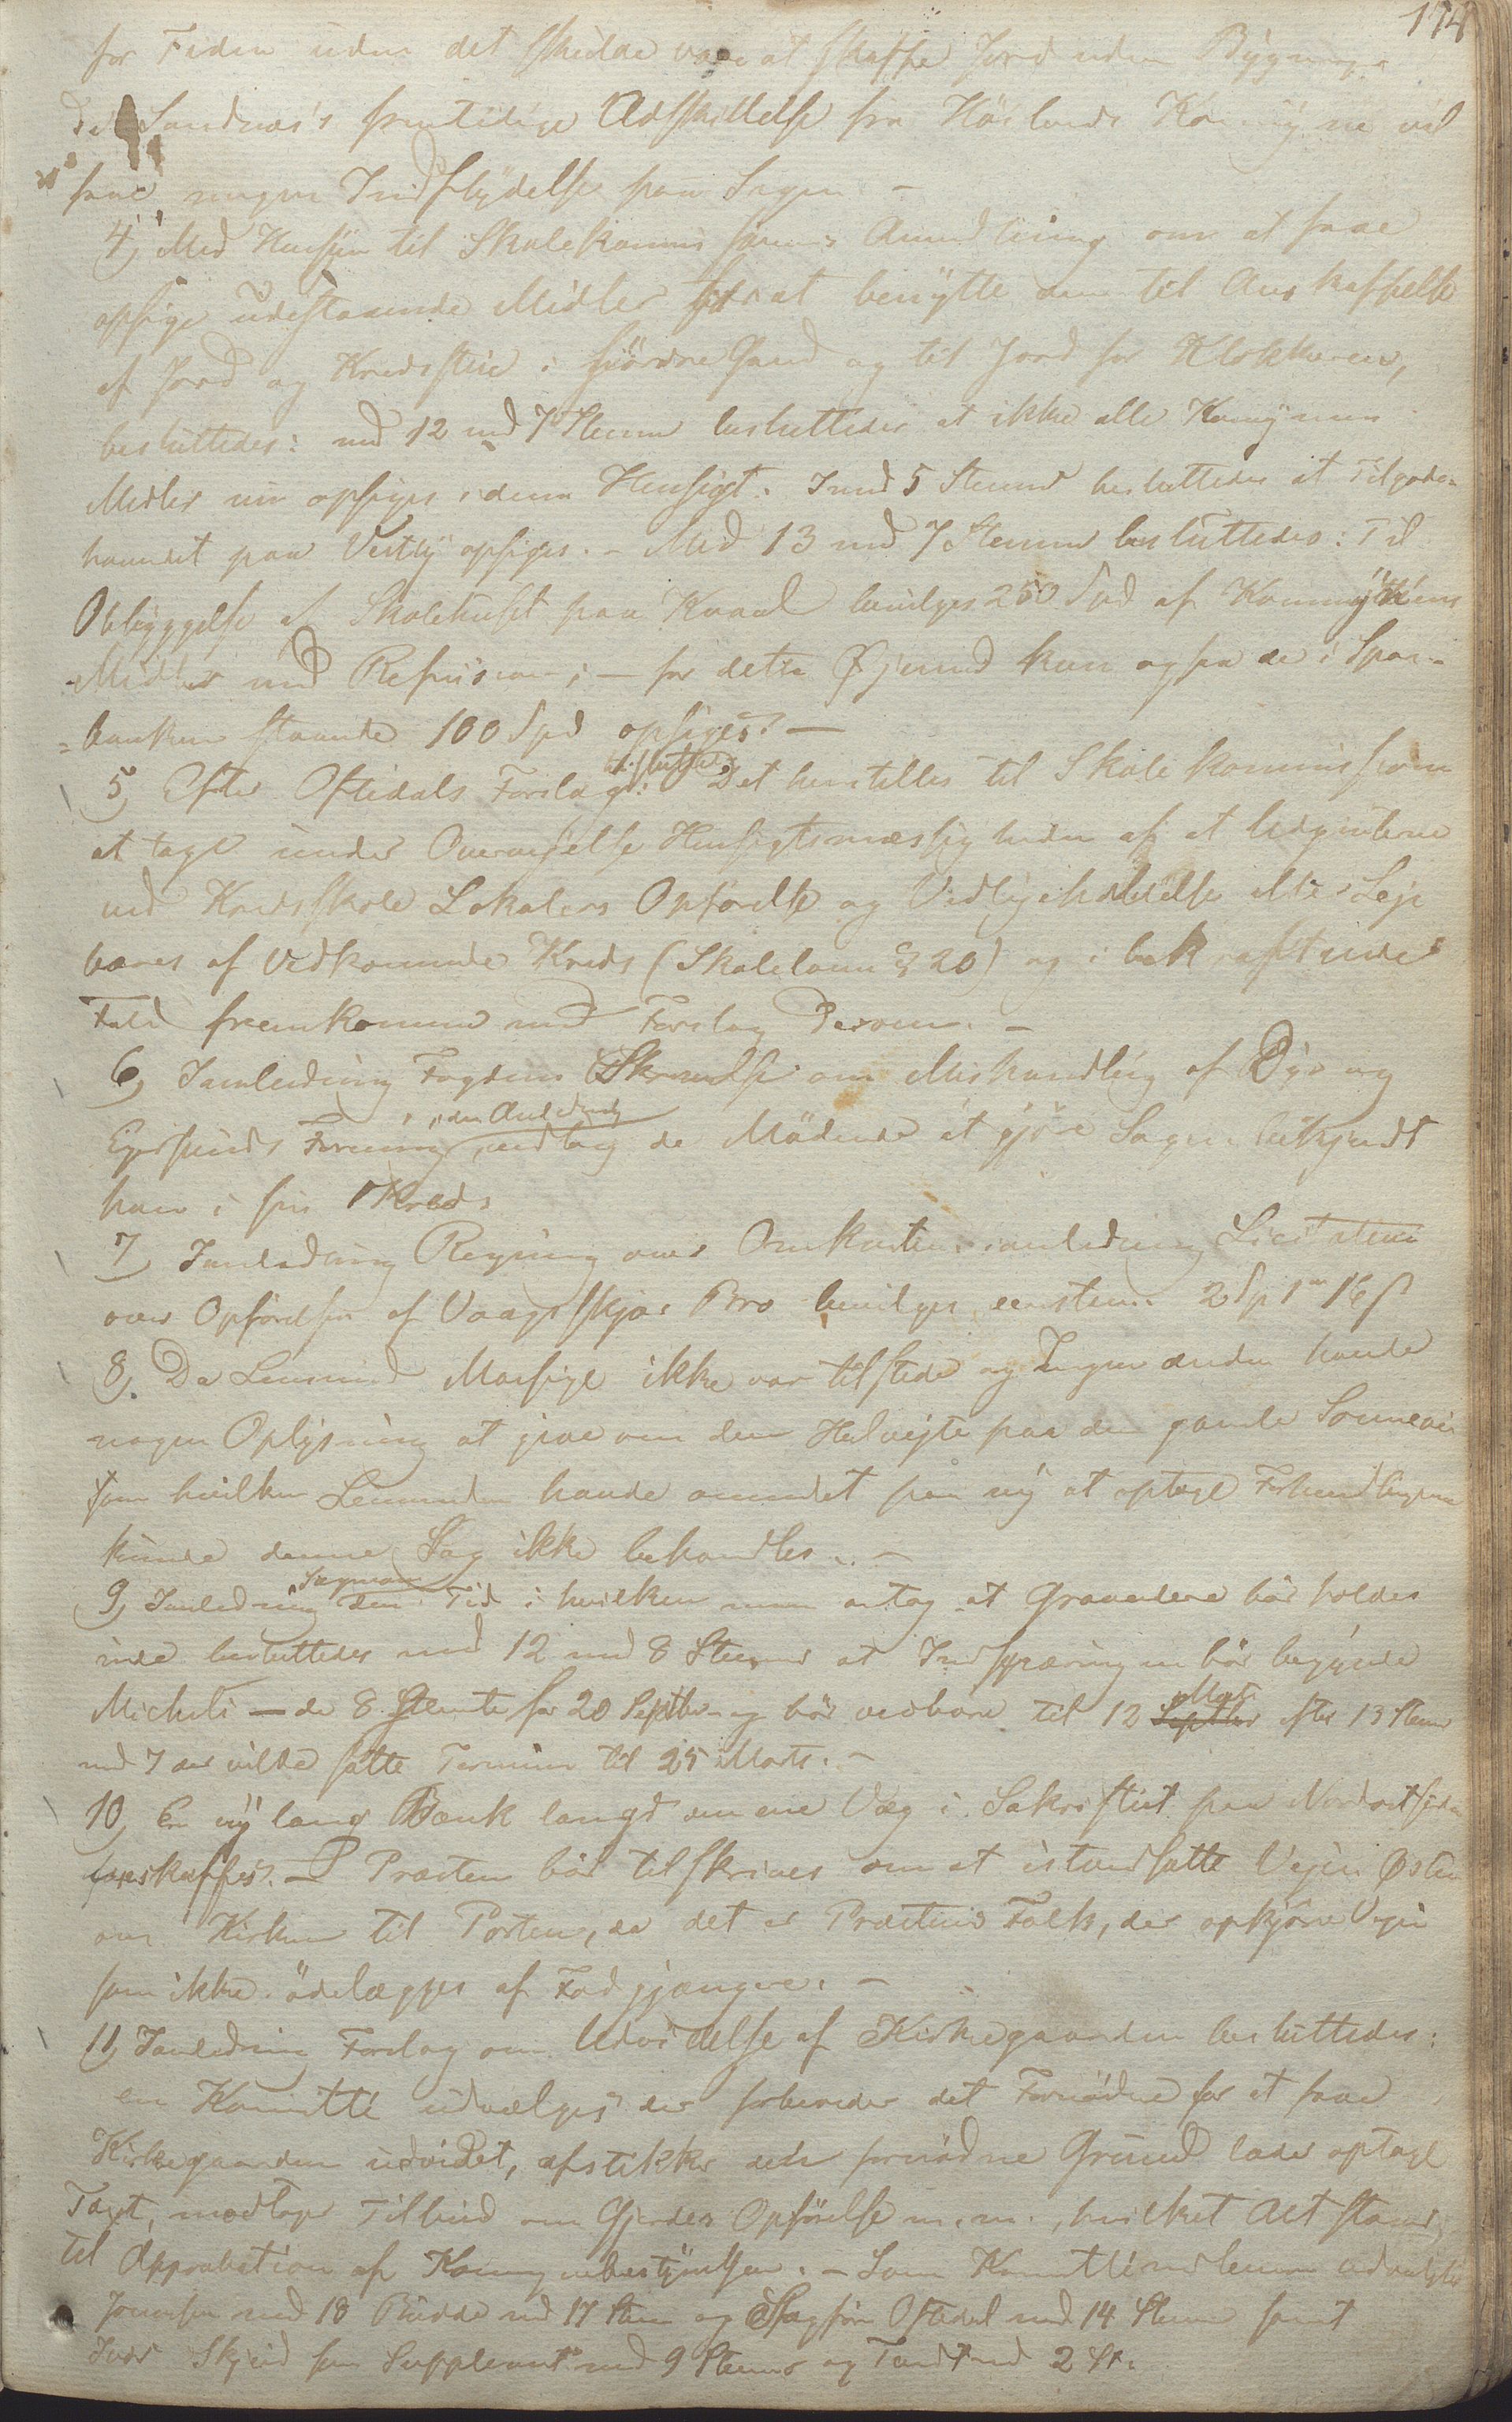 174
for Tiden uden det skulde være at skaffe Jord uden Bygning
Sandnæs's fremtidige Adskillelse fra Høilands Kommune vil
faae nogen Indflydelse paa Sagen –
4, Med Hensyn til Skolekommissionens Anmodning om at faae
opsige udestaaende Midler for at benytte dem til Anskaffelse
af Jord og Kredsstue i Gand og til Jord for Klokkeren,
besluttedes: med 12 mod 7 Stemmer besluttedes at ikke alle Kommunens
Midler opsiges i denne Hensigt. Imod 5 Stemmer besluttedes at Tilgode-
havendet paa Vestly opsiges. – Med 13 mod 7 Stemmer besluttedes: Til
Opbyggelse af Skolehuset paa Kvaal bevilges 250 Spd af Kommunens
Midler med Refusion; – for dette Øjemed kan ogsaa de i Spare-
=banken staaende 100 Spd opsiges. –
5, Efter Oftedals Forslag besluttedes: Det henstilles til Skolekommissionen
at tage under Overvejelse Hensigtsmæssigheden af at Udgivterne
ved Kredsskole Lokalers Opførelse og Vedligeholdelse eller Leje
bæres af vedkommende Kreds (Skoleloven § 20) og i bekræftende
Fald fremkomme med Forslag derom. –
6, I anledning Fogdens Skrivelse om Mishandling af Dyr og
Egersunds Forening i den Anledning vedtog de Mødende at gjøre Sagen bekjendt
hver i sin Kreds
7, I anledning Regning over Omkostn. i anledning Licitation
over Opførelsen af Vaagsskjær Bro bevilges eenstem. 2 Sp 1 m 16 ß
8, Da Lensmand Malsige ikke var tilstede og Ingen anden havde
nogen Oplysning at give om den Helvejte paa den gamle
om hvilken Lensmanden havde anmodet paa ny at optage Forhandlingerne
kunde denne Sag ikke behandles. –
9, I anledning Spørgsmaal den Tid i hvilken man antog at Gravederne bør holdes
inde besluttedes med 12 mod 8 Stemmer at Indspærringen bør begynde
Micheli – de 8 stemte for 20 Septbr – og bør vedvare til 12 Septbr Mai efter 13 Stemmer
mod 7 der vilde sætte Terminen til 25 Marts. –
10, En ny lang Bænk langs om ene Væg i Sakristiet paa Nordvestsiden
anskaffes. – Præsten bør tilskrives om at istandsætte Vejen Østen
om Kirken til Porten, da det er Præstens Folk, der opkjøre Vejen
som ikke ødelægges af Fodgjængere. –
11, I anledning Forslag om Udvidelse af Kirkegaarden besluttedes:
en Komitté udvælges der forbereder det Fornødne for at faae
Kirkegaarden udvidet, afstikker den fornødne Grund lader optage
Taxt, modtage Tilbud om Gjerdes Opførelse m. m., hvilket Alt
til Approbation af Kommunebestyrelsen. – Som Komittémedlemmer udvalgtes
med 18 med 17 Stem og Sagfør Oftedal med 14 Stemmer samt
Iver Skeid som Suppleant med 9 Stemmer og med 2 St.